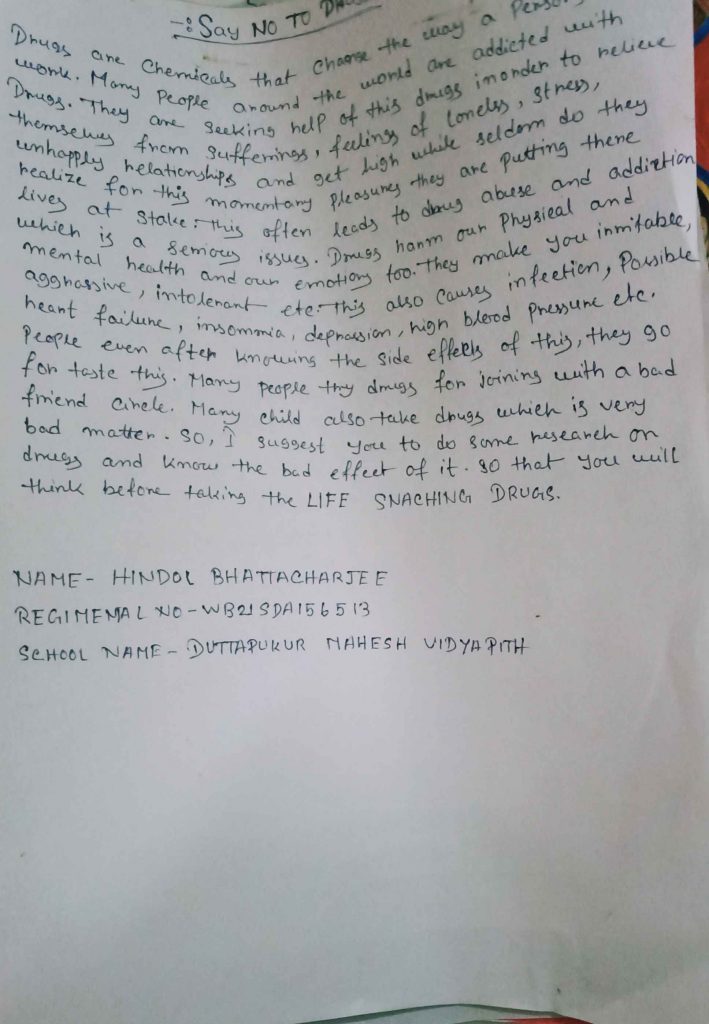 -: Say NO TO DRUGS
Drugs are Chemicals that change the way a person
work. Many People around the world are addicted with
Drugs. They are seeking help of this drugs inorder to relieve
themselves from sufferings, feelings of lonelss, stress,
unhapply relationships and get high while seldom do they
realize for this momentary pleasures they are putting there
lives at stake. This often leads to drug abuse and addiction
which is a serious issues. Drugs harm our Physical and
mental health and our emotions too. They make you irritable,
agghassive, intolerant etc. This also causes infection, Possible
heart failure, insomnia, deprassion, high blood pressure etc.
People even after knowing the side effects of this, they go
for taste this. Many people try drugs for joining with a bad
friend circle. Many child also take drugs which is very
bad matter. So, I suggest you to do some research on
drugs and know the bad effect of it. so that you will
think before taking the LIFE SNACHING DRUGS.
NAME- HINDOL BHATTACHARJEE
REGIMENAL NO-WB21SDA156513
SCHOOL NAME - DUTTAPUKUR MAHESH VIDYAPITH